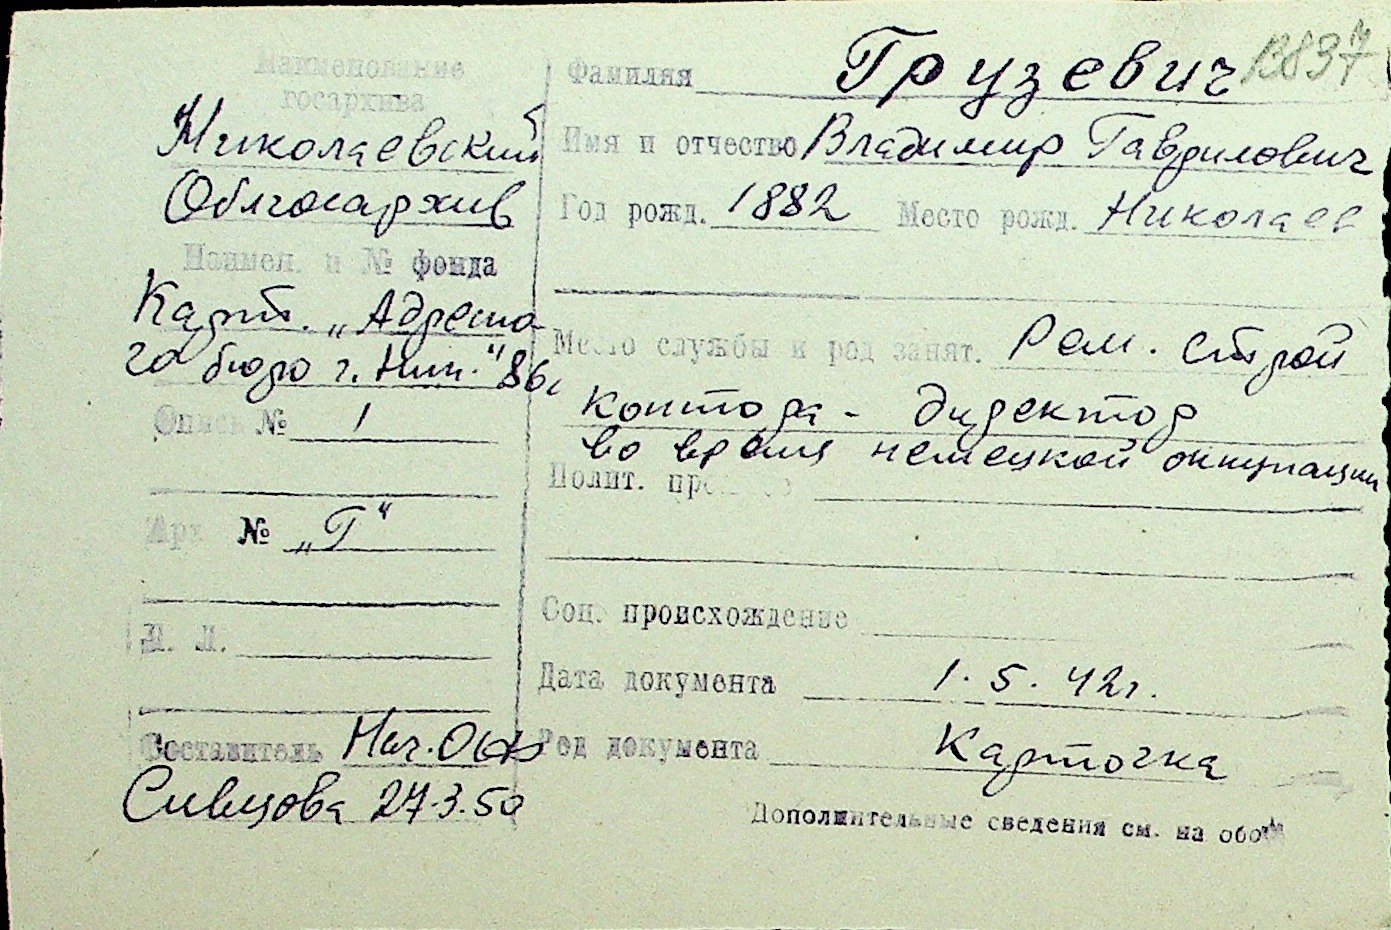 Наименование
госархива
Николаевский
Облгосархив
Наимен. и № фонда
Карт. „Адресно-
го бюро г. Ник." 86
Опись № 1
Арх № „Г"
Л. Л.
Составитель Нач.
Сивцова 27.3.50
Фамилия Грузевич
Имя и отчество Владимир Гаврилович
Год рожд. 1882 Место рожд. Николаев
Место службы и род занят. Рем. строй
контора - директор
во время немецкой оккупации
Полит.
Соц. происхождение
Дата документа 1.5.42г.
Род документа Карточка
Дополнительные сведения см. на обо